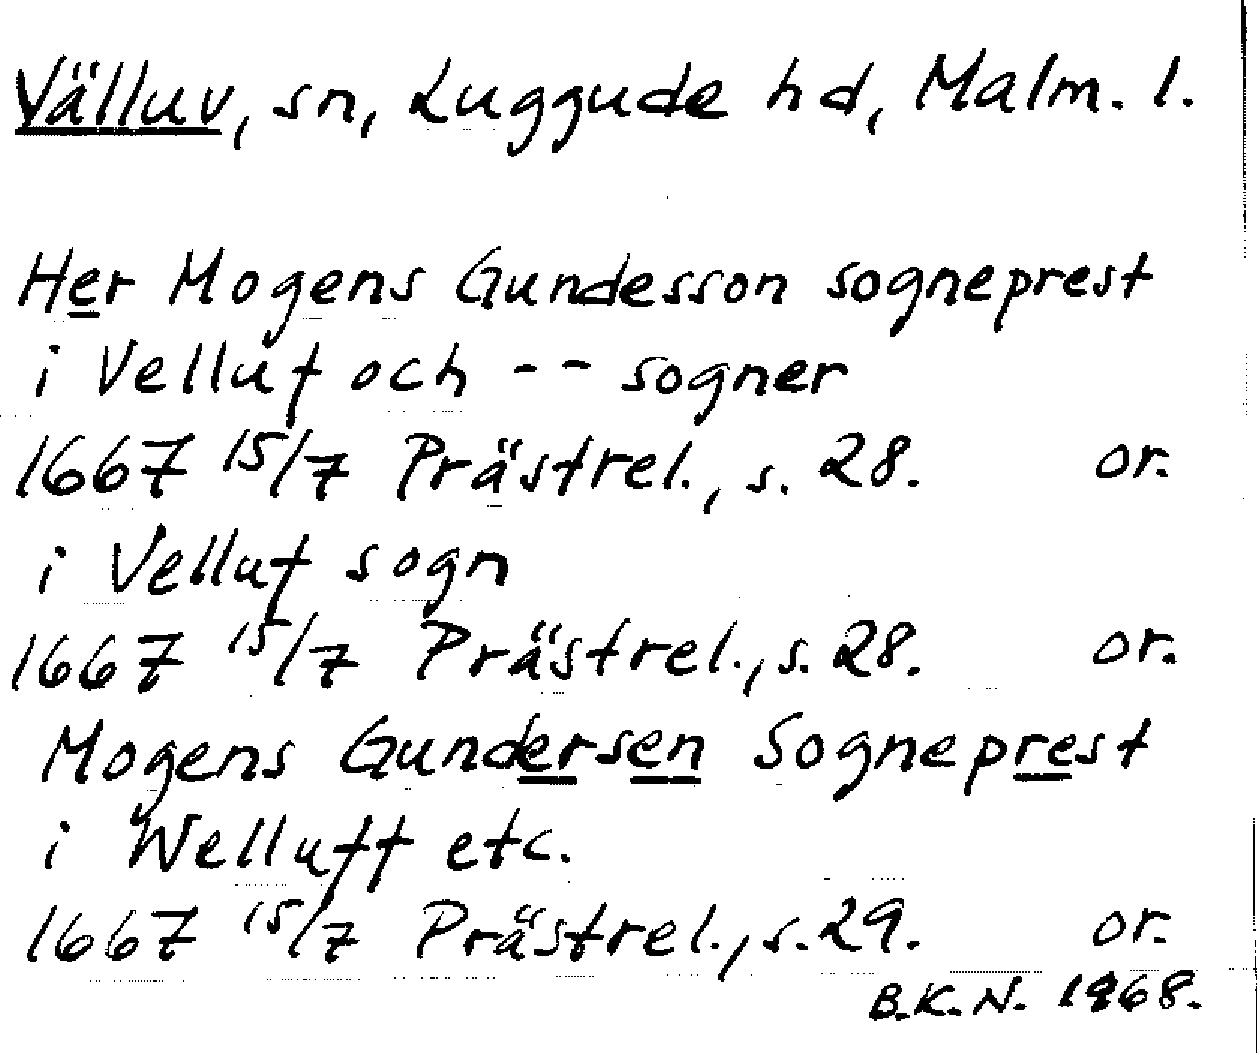 Välluv, sn, Luggude hd, Malm. l.
Her Mogens Gundesson sogneprest
i Velluf och -- sogner
1667 15/7 Prästrel., s. 28. or.
i Velluf sogn
1667 15/7 Prästrel., s. 28. or.
Mogens Gundersen Sogneprest
i Welluff etc.
1667 15/7 Prästrel., s. 29. or.
B.K.N. 1968.